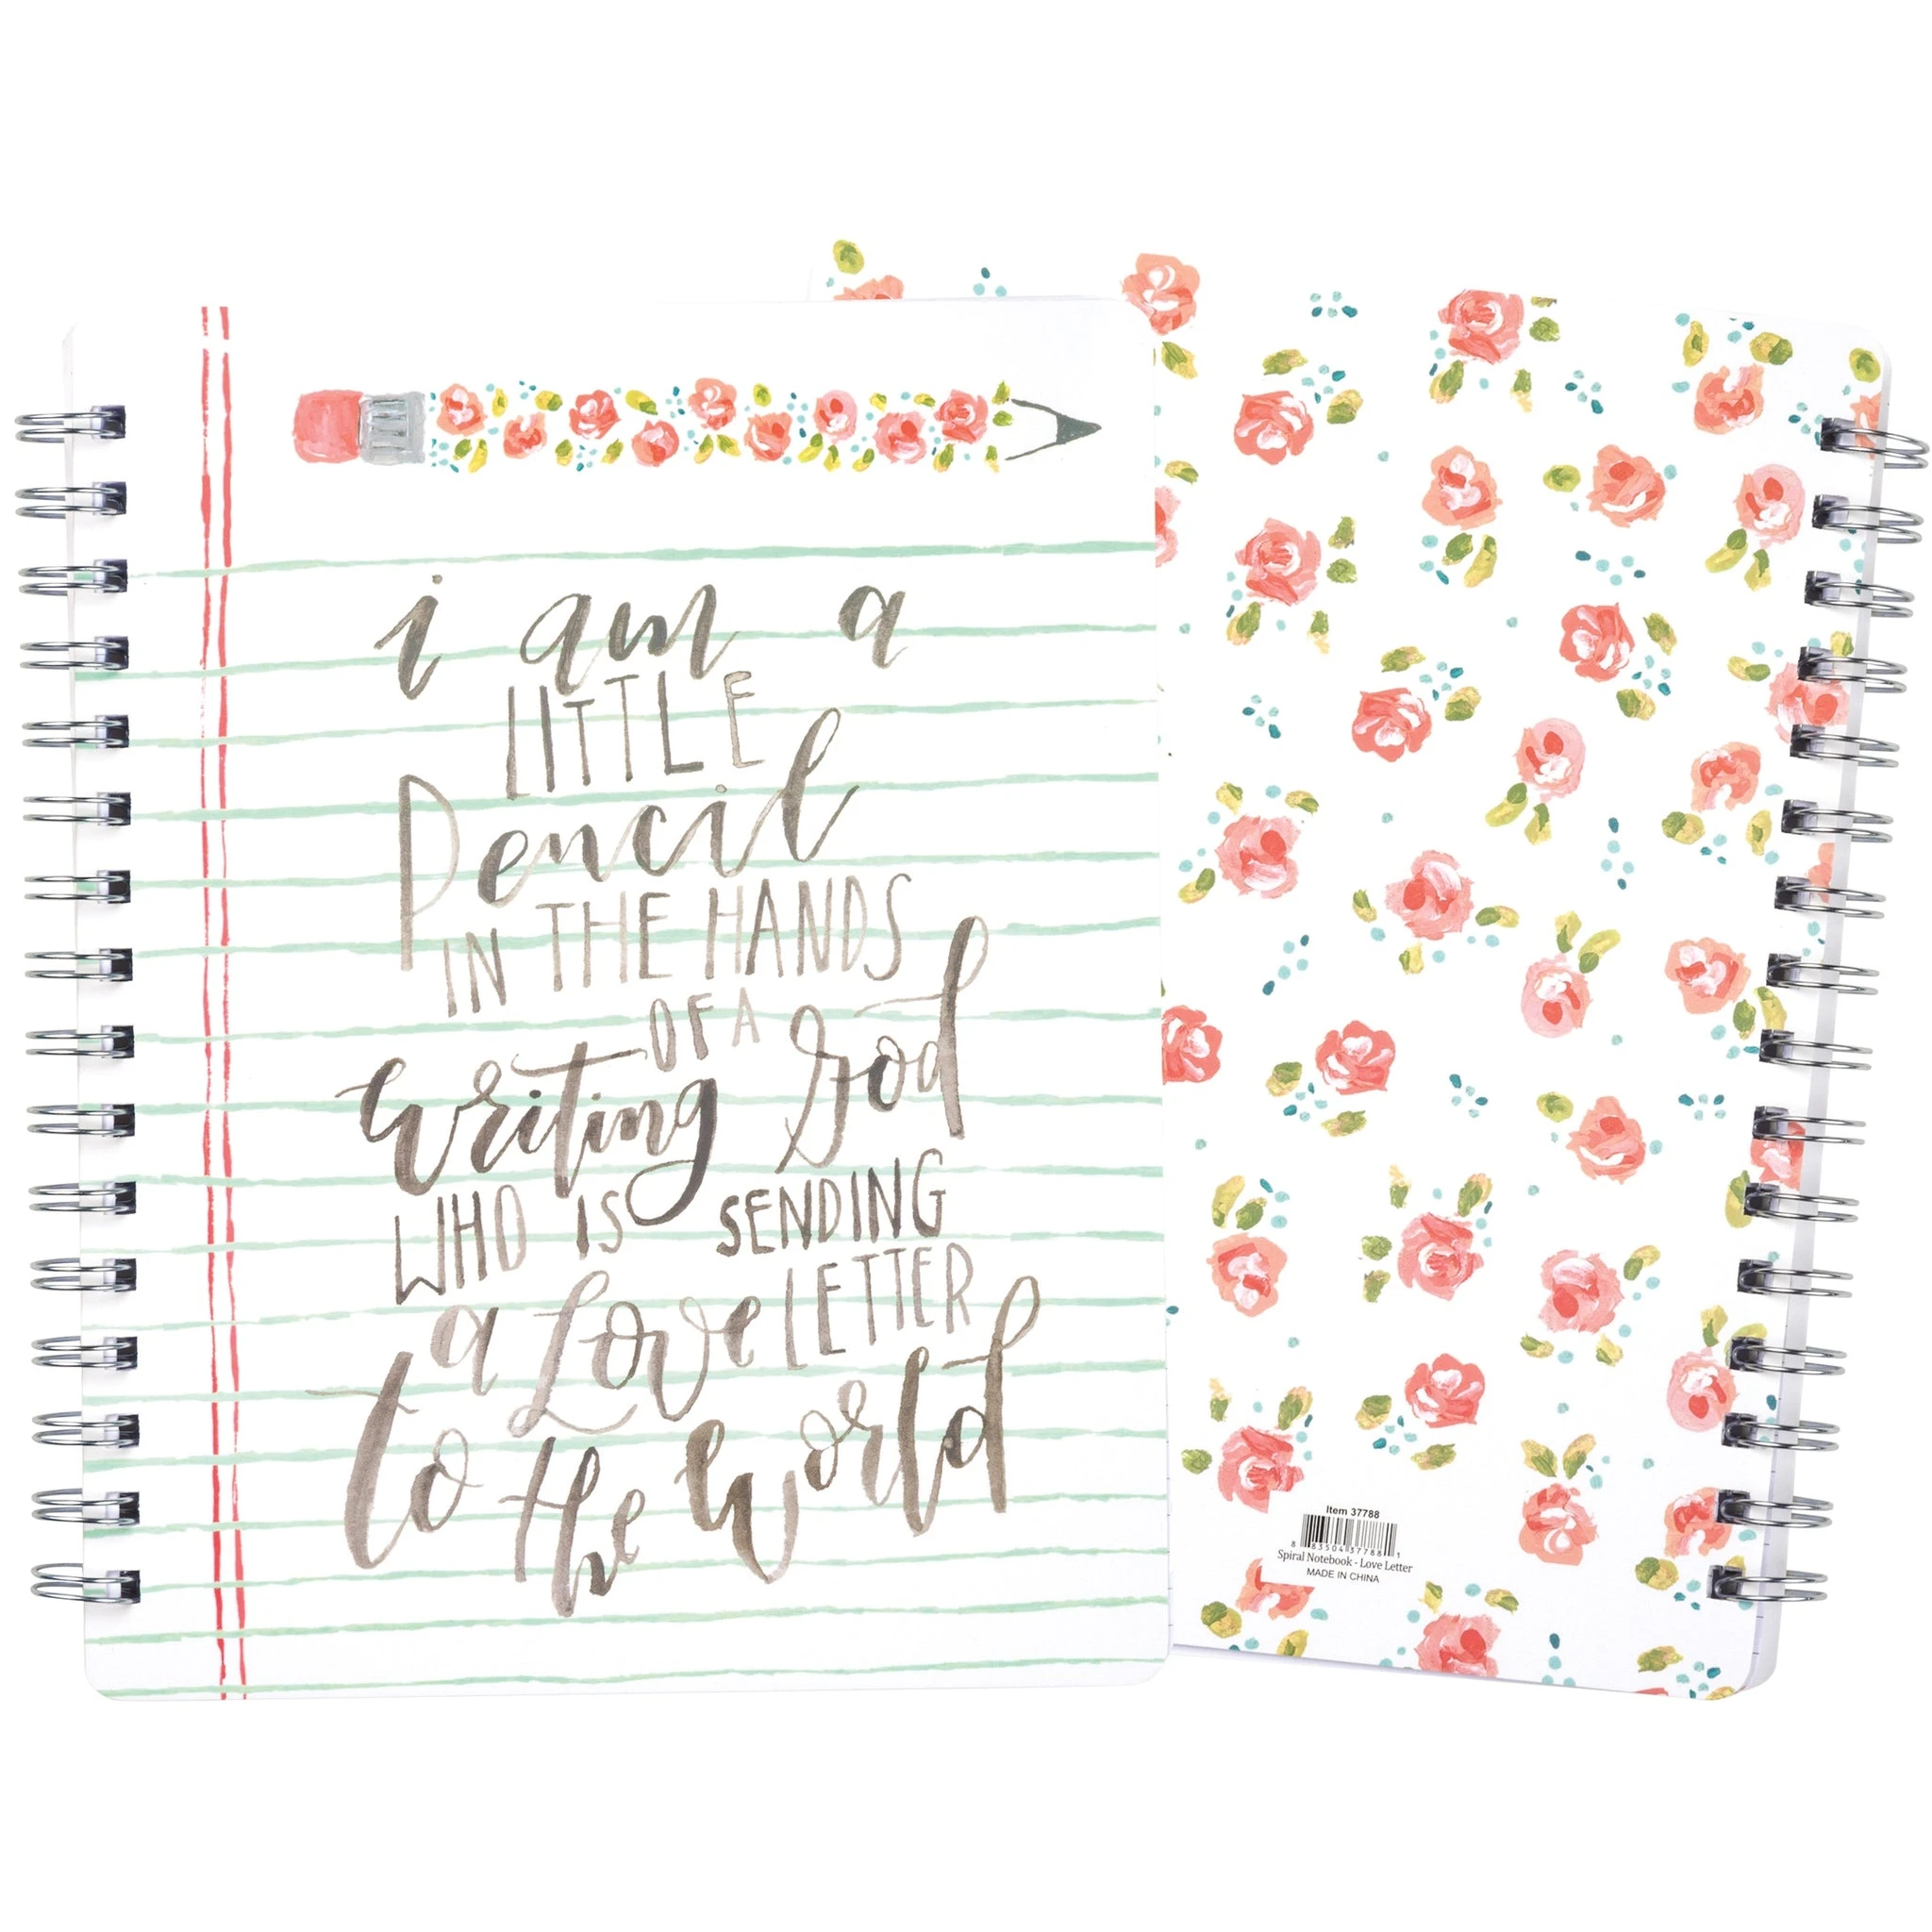 i am a
LITTLE
Pencil
IN THE HANDS
OF A
writing God
WHO IS SENDING
a Love LETTER
to the World
Item 37788
8 83504 37788 1
Spiral Notebook - Love Letter
MADE IN CHINA